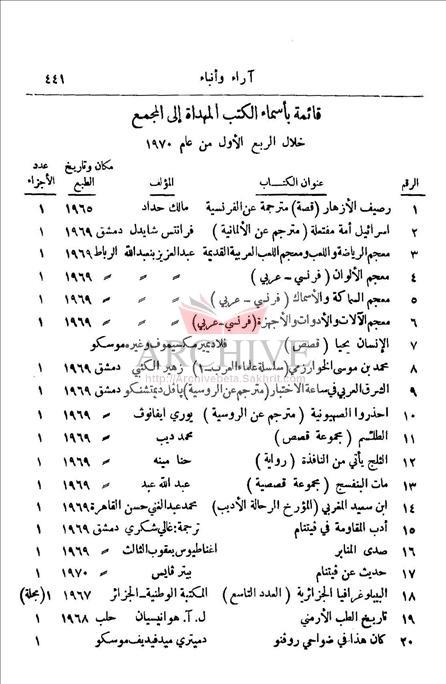 آراء وأنباء ٤٤١
قائمة بأسماء الكتب المهداة إلى المجمع
خلال الربع الأول من عام ١٩٧٠
الرقم عنوان الكتــاب المؤلف مكان وتاريخ الطبع عدد الأجزاء
١ رصيف الأزهار (قصة) مترجمة عن الفرنسية مالك حداد ١٩٦٥ ١
٢ اسرائيل أمة مفتعلة (مترجم عن الألمانية) فرانتس شايدل دمشق ١٩٦٩ ١
٣ معجم الرياضة واللعب ومعجم اللعب العربية القديمة عبدالعزيز بنعبدالله الرباط ١٩٦٩ ١
٤ معجم الألوان (فرنسي – عربي) » » » ١٩٦٩ ١
٥ معجم السماكة والأسماك (فرنسي – عربي) » » » ١٩٦٩ ١
٦ معجم الآلات والأدوات والأجهزة (فرنسي–عربي) » » » ١٩٦٩ ١
٧ الإنسان يحيا (قصص) فلاديمير مكسيموف وغيره موسكو
٨ محمد بن موسى الخوارزمي (سلسلة علماء العرب–١) زهير الكتبي دمشق ١٩٦٩ ١
٩ الشرق العربي في ساعة الاختبار (مترجم عن الروسية) بافل ديمتشنكو دمشق ١٩٦٩ ١
١٠ احذروا الصهيونية (مترجم عن الروسية) يوري ايفانوف » ١٩٦٩ ١
١١ الطلسم (مجموعة قصص) محمد ديب » ١٩٦٩ ١
١٢ الثلج يأتي من النافذة (رواية) حنا مينه » ١٩٦٩ ١
١٣ مات البنفسج (مجموعة قصصية) عبد الله عبد » ١٩٦٩ ١
١٤ ابن سعيد المغربي (المؤرخ الرحالة الأديب) محمد عبدالغني حسن القاهرة ١٩٦٩ ١
١٥ أدب المقاومة في فيتنام ترجمة: غالي شكري دمشق ١٩٦٩ ١
١٦ صدى المنابر اغناطيوس يعقوب الثالث » ١٩٦٩ ١
١٧ حديث عن فيتنام بيتر فايس » ١٩٧٠ ١
١٨ الببلوغرافيا الجزائرية (العدد التاسع) المكتبة الوطنية–الجزائر ١٩٦٧ ١(مجلة)
١٩ تاريخ الطب الأرمني ل. آ. هوانيسيان حلب ١٩٦٨ ١
٢٠ كان هذا في ضواحي روفنو دميتري ميدفيديف موسكو ١
ARCHIVE
http://Archivebeta.Sakhrit.com